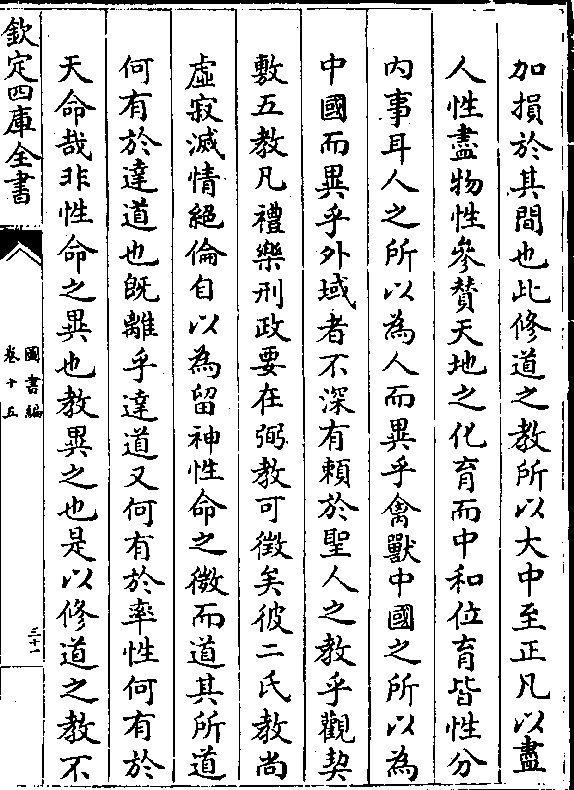 加損於其間也此修道之教所以大中至正凡以盡
人性盡物性參贊天地之化育而中和位育皆性分
内事耳人之所以為人而異乎禽獸中國之所以為
中國而異乎外域者不深有賴於聖人之教乎觀契
敷五教凡禮樂刑政要在弼教可徵矣彼二氏教尚
虛寂滅情絕倫自以為留神性命之微而道其所道
何有於達道也既離乎達道又何有於率性何有於
天命哉非性命之異也教異之也是以修道之教不
欽定四庫全書
圖書編
卷十五
三十一